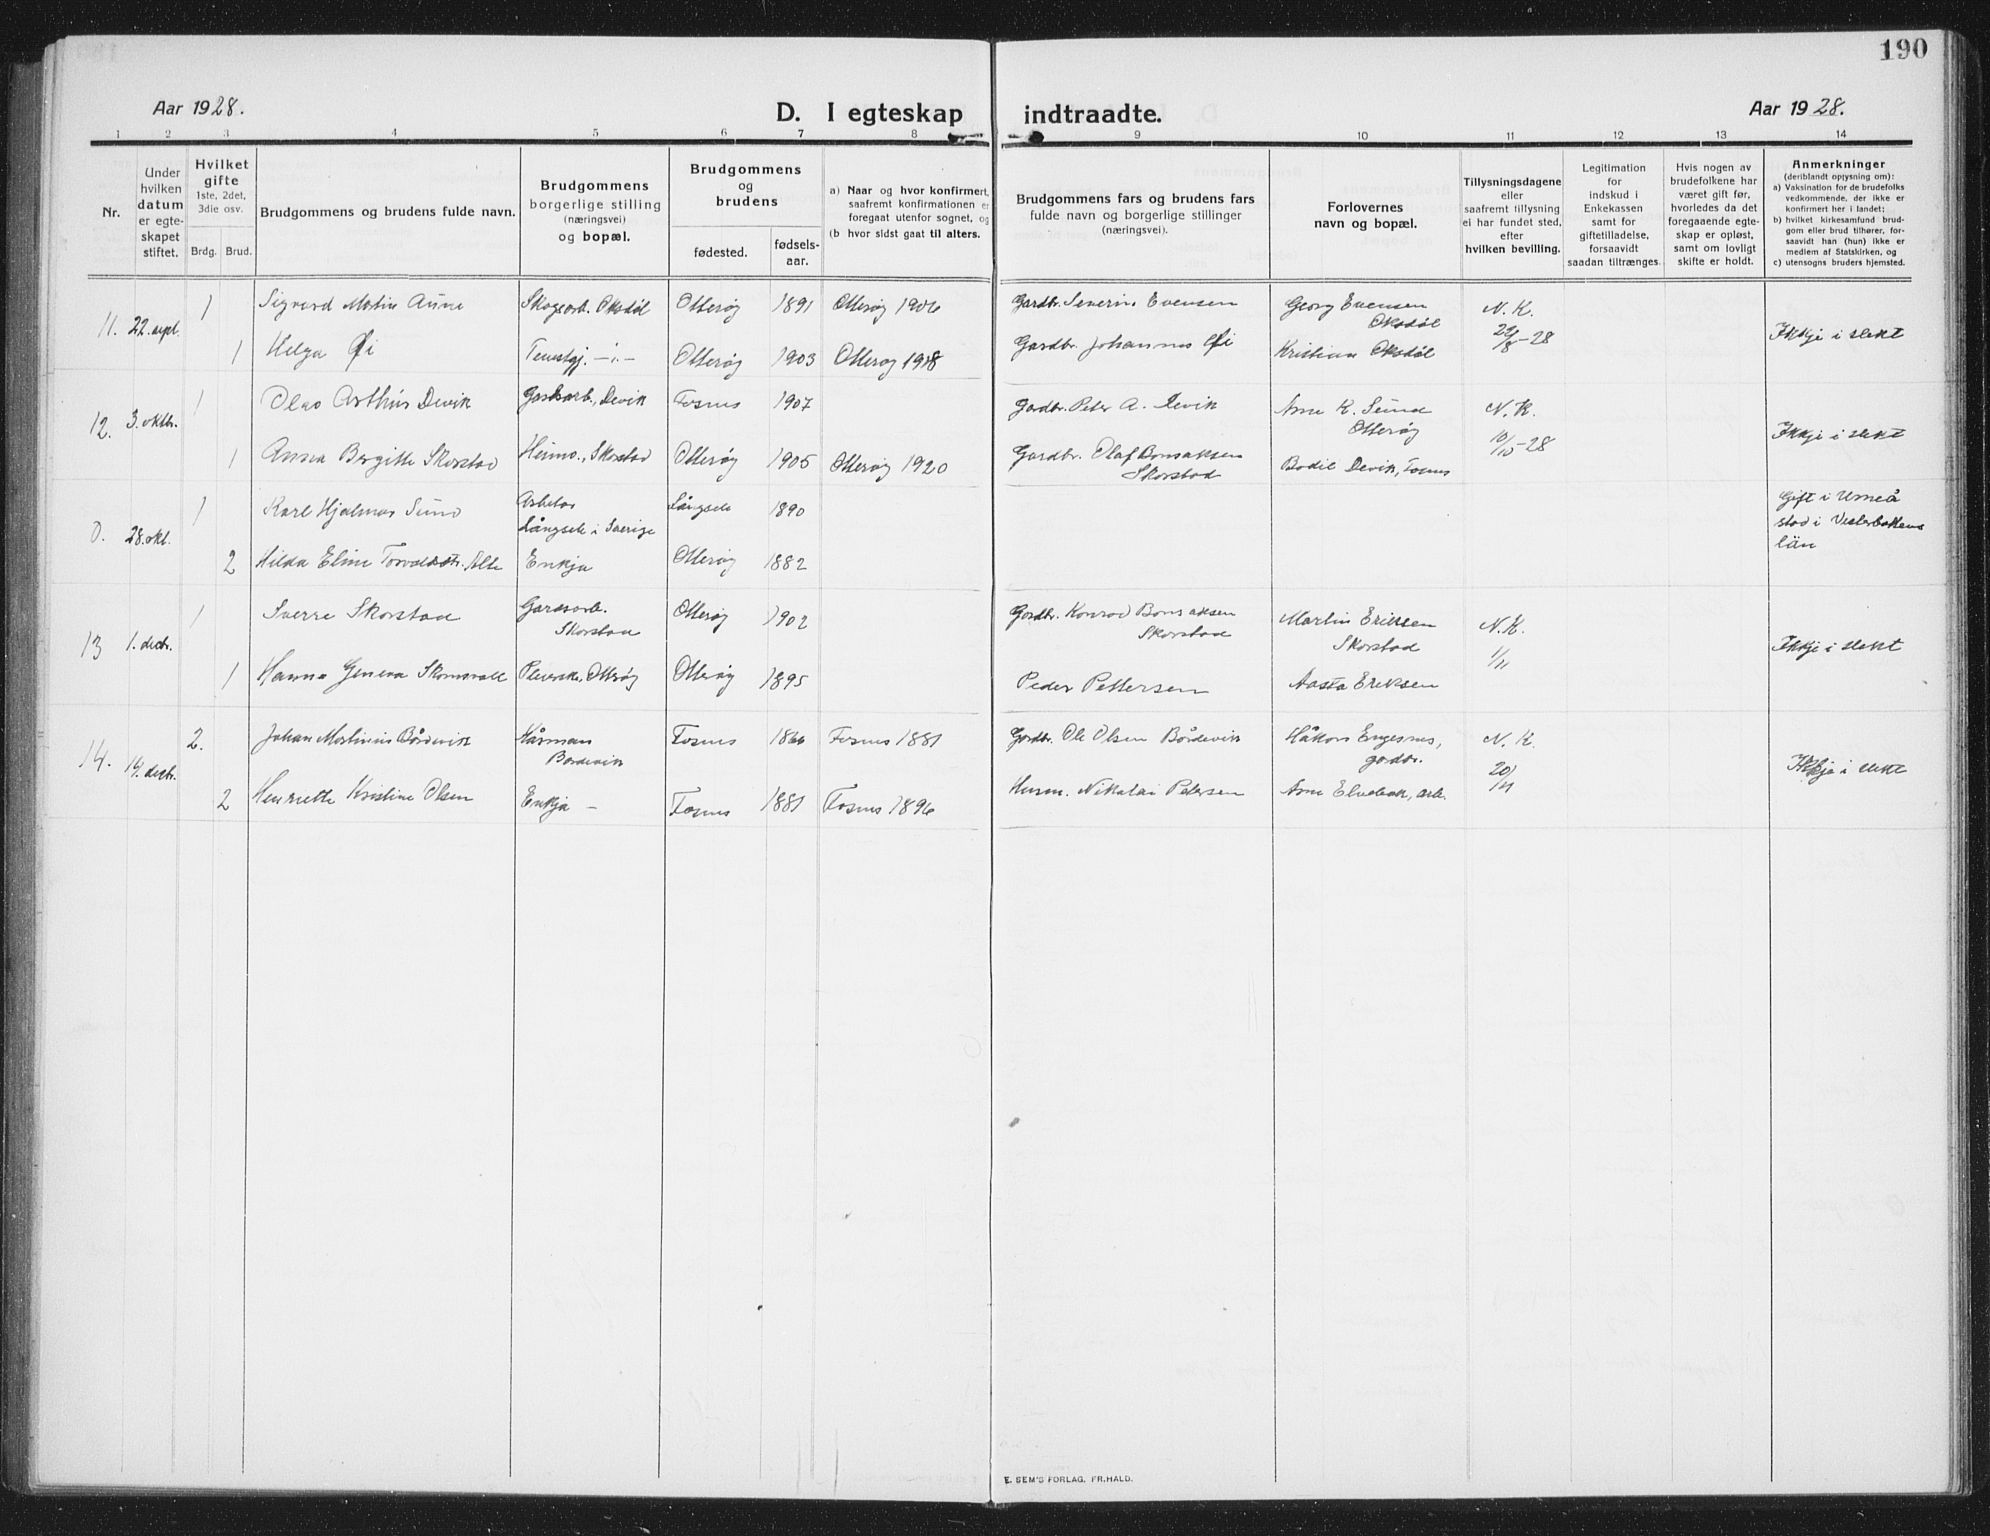 190
Aar 1928.
D. I egteskap indtraadte.
Aar 1928.
1 2 3 4 5 6 7 8 9 10 11 12 13 14
Nr.
Under
hvilken
datum
er egte-
skapet
stiftet.
Hvilket
gifte
1ste, 2det,
3die osv.
Brdg. Brud.
Brudgommens og brudens fulde navn.
Brudgommens
borgerlige stilling
(næringsvei)
og bopæl.
Brudgommens
og
brudens
fødested.
fødsels-
aar.
a) Naar og hvor konfirmert,
saafremt konfirmationen er
foregaat utenfor sognet, og
(b hvor sidst gaat til alters.
Brudgommens fars og brudens fars
fulde navn og borgerlige stillinger
(næringsvei).
Forlovernes
navn og bopæl.
Tillysningsdagene
eller
saafremt tillysning
ei har fundet sted,
efter
hvilken bevilling.
Legitimation
for
indskud i
Enkekassen
samt for
giftetilladelse,
forsaavidt
saadan tiltrænges.
Hvis nogen av
brudefolkene har
været gift før,
hvorledes da det
foregaaende egte-
skap er opløst,
samt om lovligt
skifte er holdt.
Anmerkninger
(deriblandt opjysning om):
a) Vaksination for de brudefolks
vedkommende, der ikke er
konfirmert her i landet;
b) hvilket kirkesamfund brud-
gom eller brud tilhører, for-
saavidt han (hun) ikke er
medlem af Statskirken, og
c) utensogns bruders hjemsted.
11. 22. sept. 1 Sigvard Martin Aune Skogsarb. Oksdøl Otterøy 1891 Otterøy 1906 Gardbr. Severin Evensen Georg Evensen
Oksdøl
N. K.
29/8-28
Ikkje i slekt
1 Helga Øi Tenestgj. -"- Otterøy 1903 Otterøy 1918 Gardbr. Johannes Øi Kristian Oksdøl
12. 3. oktbr. 1 Olav Arthur Devik Gardsarb., Devik Fosnes 1907 Gardbr. Peter A. Devik Arne K. Sund
Otterøy
N. K.
10/10-28
Ikkje i slekt
1 Anna Bergitte Skorstad Heime., Skorstad Otterøy 1905 Otterøy 1920 Gardbr. Olaf Bonsaksen
Skorstad
Bodil Devik, Fosnes
0. 28. okt. 1 Karl Hjalmar Sund Arbeidar
Långsele i Sverige
Långsele 1890
Gift i Umeå
stad i Vesterbottens
län
2 Hilda Eline Torvaldsdtr. Alte Enkja Otterøy 1882
13 1. decbr. 1 Sverre Skorstad Gardsarb.
Skorstad
Otterøy 1902 Gardbr. Konrad Bonsaksen
Skorstad
Martin Eriksen
Skorstad
N.K.
1/11
Ikkje i slekt
1 Hanna Otterøy 1895 Peder Pettersen Aasta Eriksen
14. 14. decbr. 2. Johan Martinus Bårdevik Kårmann
Bårdevik
Fosnes 1866 Fosnes 1881 Gardbr. Ole Olsen Bårdevik Håkon Engesnes,
gardbr.
N. K.
20/11
Ikkje i slekt
2 Henriette Kristine Olsen Enkja - Fosnes 1881 Fosnes 1896 Husm. Nikolai Petersen Arne Elvebak, arb.
E. SEM'S FORLAG, FR.HALD.